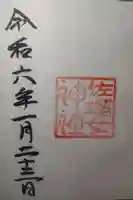 令和六年一月二十三日
佐瑠女
神社